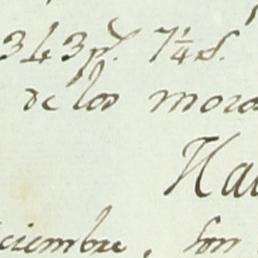 343 p.s 7¼ d.
de los mora
Hac
ciembre, son